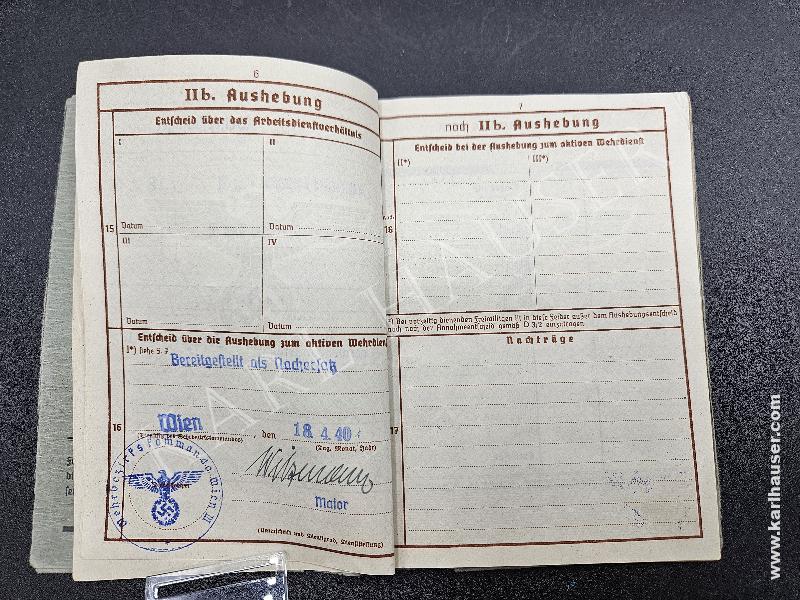 6
IIb. Aushebung
Entscheid über das Arbeitsdienstverhältnis
I
II
15
Datum
Datum
III
IV
Datum
Datum
Entscheid über die Aushebung zum aktiven Wehrdien
I*) siehe S. 7
Bereitgestellt als Nachersatz
16
Wien
den
18. 4. 40
(Tag, Monat, Jahr)
Wehrbezirkskommando Wien III
Major
(Unterschrift und Dienstgrad, Dienststellung)
7
noch IIb. Aushebung
Entscheid bei der Aushebung zum aktiven Wehrdienst
II*)
III*)
noch
16
*) Bei vorzeitig dienenden Freiwilligen ist in diese Felder außer dem Aushebungsentscheid
auch noch der Annahmeentscheid gemäß D 3/2 einzutragen.
Nachträge
17
KARL HAUSER
www.karlhauser.com